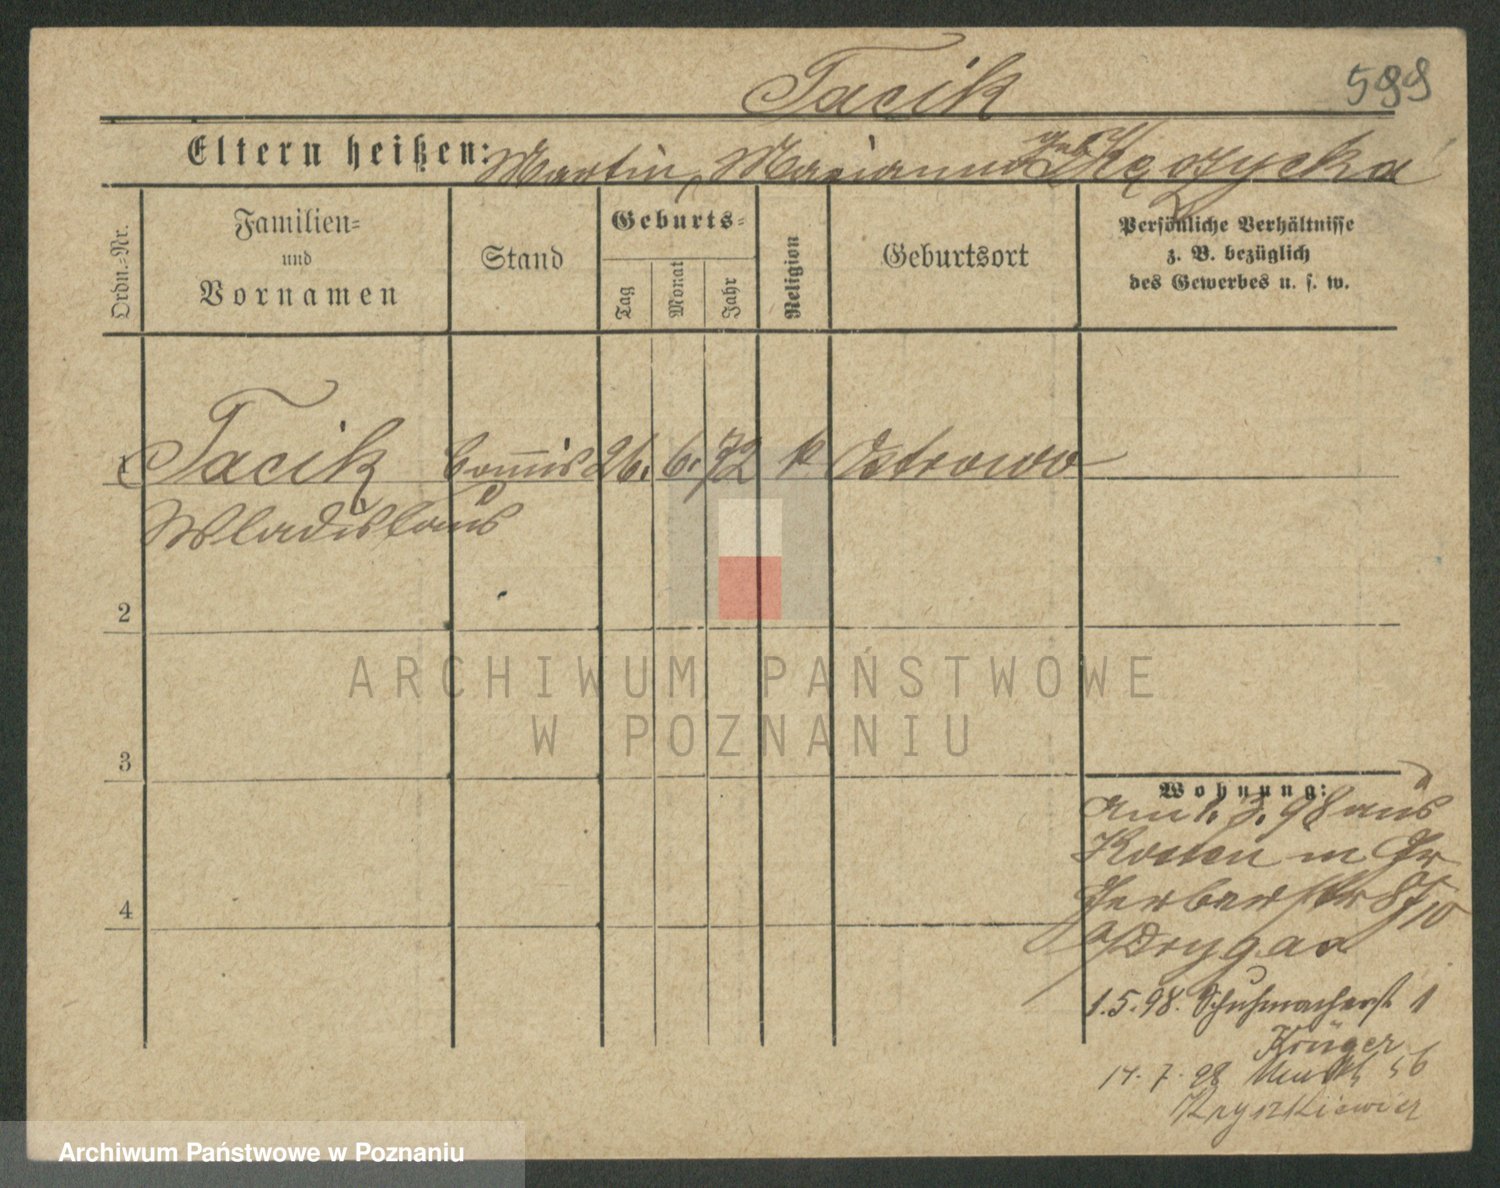 Tacik
599
Eltern heißen: Martin, Marianna geb. Kęszycka
Ordn.-Nr.
Familien-
und
Vornamen
Stand
Geburts-
Tag
Monat
Jahr
Religion
Geburtsort
Persönliche Verhältnisse
z. B. bezüglich
des Gewerbes u. s. w.
1 Tacik Commis 26. 6. 72 k Ostrowo
Wladislaus
2
ARCHIWUM PAŃSTWOWE
W POZNANIU
3
Wohnung:
am 1. 3. 98 aus
Kosten in Gr
Gerberstr 8/10
b/ Drygas
4
1.5.98. Schuhmacherst 1
Krüger
14.7.98 56
Kryszkiewicz
Archiwum Państwowe w Poznaniu